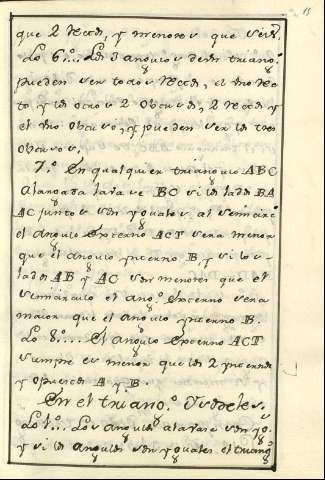 que 2 Rectos, y menores que seis R.
Lo 6º... Los 3 angulos de un triango.
pueden ser todos Rectos, el uno Rec
to y los otros 2 obtusos, 2 Rectos y
el uno obtuso, y pueden ser los tres
obtusos.
7.º En qualquier triangulo ABC
alargada la base BC si los lados BA
AC juntos son yguales al semicirc.
el angulo Externo ACT sera menor
que el angulo ynterno B, y si los
lados AB y AC son menores que el
semicirculo el ang.º Externo sera
maior que el angulo ynterno B.
Lo 8.º.... El angulo Externo ACT
siempre es menor que los 2 ynternos
y opuestos A y B.
En el triang.º Ysosceles.
Lo 1.º... Los angulos a la base son yg.s
y si los angulos son yguales el triang.º